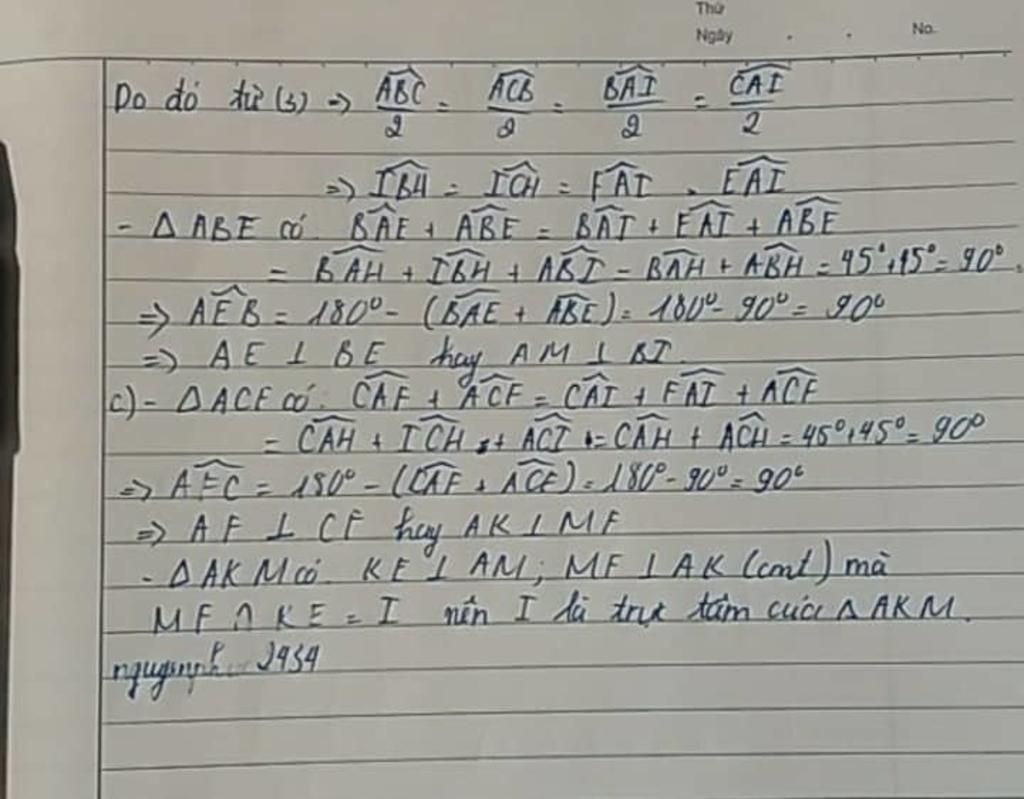 Thứ
Ngày . . No.
Do đó từ (3) => \widehat{ABC}/2 = \widehat{ACB}/2 = \widehat{BAI}/2 = \widehat{CAI}/2
=> \widehat{IBH} = \widehat{ICH} = \widehat{FAI} = \widehat{EAI}
- Δ ABE có \widehat{BAE} + \widehat{ABE} = \widehat{BAI} + \widehat{EAI} + \widehat{ABE}
= \widehat{BAH} + \widehat{IBH} + \widehat{ABI} = \widehat{BAH} + \widehat{ABH} = 45° + 45° = 90°.
=> \widehat{AEB} = 180° - (\widehat{BAE} + \widehat{ABE}) = 180° - 90° = 90°
=> AE ⊥ BE hay AM ⊥ BI.
c) - Δ ACF có: \widehat{CAF} + \widehat{ACF} = \widehat{CAI} + \widehat{FAI} + \widehat{ACF}
= \widehat{CAH} + \widehat{ICH} + \widehat{ACI} = \widehat{CAH} + \widehat{ACH} = 45° + 45° = 90°
=> \widehat{AFC} = 180° - (\widehat{CAF} + \widehat{ACF}) = 180° - 90° = 90°
=> AF ⊥ CF hay AK ⊥ MF
- Δ AKM có KE ⊥ AM; MF ⊥ AK (cmt) mà
MF ∩ KE = I nên I là trực tâm của Δ AKM.
2434